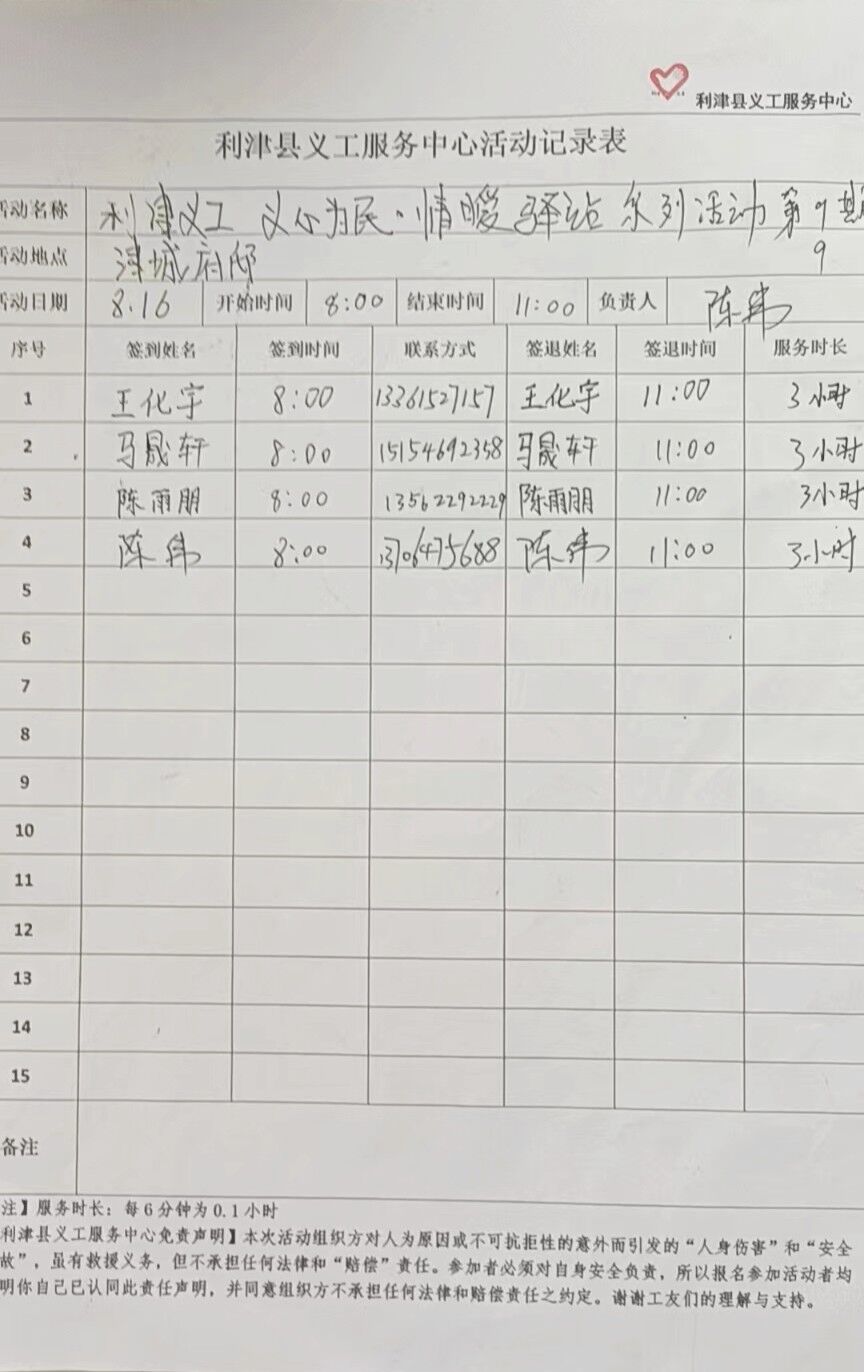 利津县义工服务中心
利津县义工服务中心活动记录表
活动名称 利津义工 义心为民·情暖驿站 系列活动 第9期
9
活动地点 津城府邸
活动日期 8.16 开始时间 8:00 结束时间 11:00 负责人 陈伟
序号 签到姓名 签到时间 联系方式 签退姓名 签退时间 服务时长
1 王化宇 8:00 13361527157 王化宇 11:00 3小时
2 马晟轩 8:00 15154692358 马晟轩 11:00 3小时
3 陈雨朋 8:00 13562292229 陈雨朋 11:00 3小时
4 陈伟 8:00 13706475688 陈伟 11:00 3小时
5
6
7
8
9
10
11
12
13
14
15
备注
注】服务时长：每6分钟为0.1小时
利津县义工服务中心免责声明】本次活动组织方对人为原因或不可抗拒性的意外而引发的“人身伤害”和“安全
故”，虽有救援义务，但不承担任何法律和“赔偿”责任。参加者必须对自身安全负责，所以报名参加活动者均
明你自己已认同此责任声明，并同意组织方不承担任何法律和赔偿责任之约定。谢谢工友们的理解与支持。